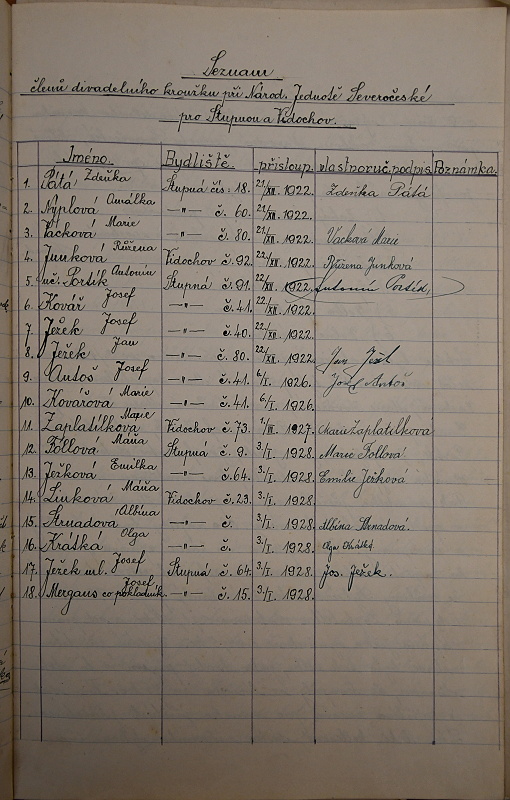 Seznam
členů divadelního kroužku při Národ. Jednotě Severočeské
pro Stupnou a Vidochov.
Jméno. Bydliště. přístoup. vlastnoruč. podpis. Poznámka.
1. Pátá, Zdeňka Stupná čís: 18. 21/XII. 1922. Zdeňka Pátá
2. Nýplová Amálka —〃— č. 60. 21/XII. 1922.
3. Vacková Marie —〃— č. 80. 21/XII. 1922. Vacková Marie
4. Junková Růžena Vidochov č. 92. 22/XII. 1922. Růžena Junková
5. uč. Portík Antonín Stupná č. 91. 22/XII. 1922. Antonín Portík,
6. Kovář Josef —〃— č. 41. 22/XII. 1922.
7. Ježek Josef —〃— č. 40. 22/XII. 1922.
8. Ježek Jan —〃— č. 80. 22/XII. 1922. Jan Ježek
9. Antoš Josef —〃— č. 41. 6/I. 1926. Josef Antoš
10. Kovářová Marie —〃— č. 41. 6/I. 1926.
11. Zaplatilková Marie Vidochov č. 73. 1/III. 1927. Marie Zaplatilková
12. Follová Máňa Stupná č. 9. 3./I. 1928. Marie Follová
13. Ježková Emilka —〃— č. 64. 3./I. 1928. Emilie Ježková
14. Linková Máňa Vidochov č. 23. 3./I. 1928.
15. Strnadova Albína —〃— č. 3./I. 1928. Albína Strnadová.
16. Krátká Olga —〃— č. 3./I. 1928. Olga Krátká
17. Ježek ml. Josef Stupná č. 64. 3./I. 1928. Jos. Ježek.
18. Mergans co pokladník. Josef —〃— č. 15. 3./I. 1928.